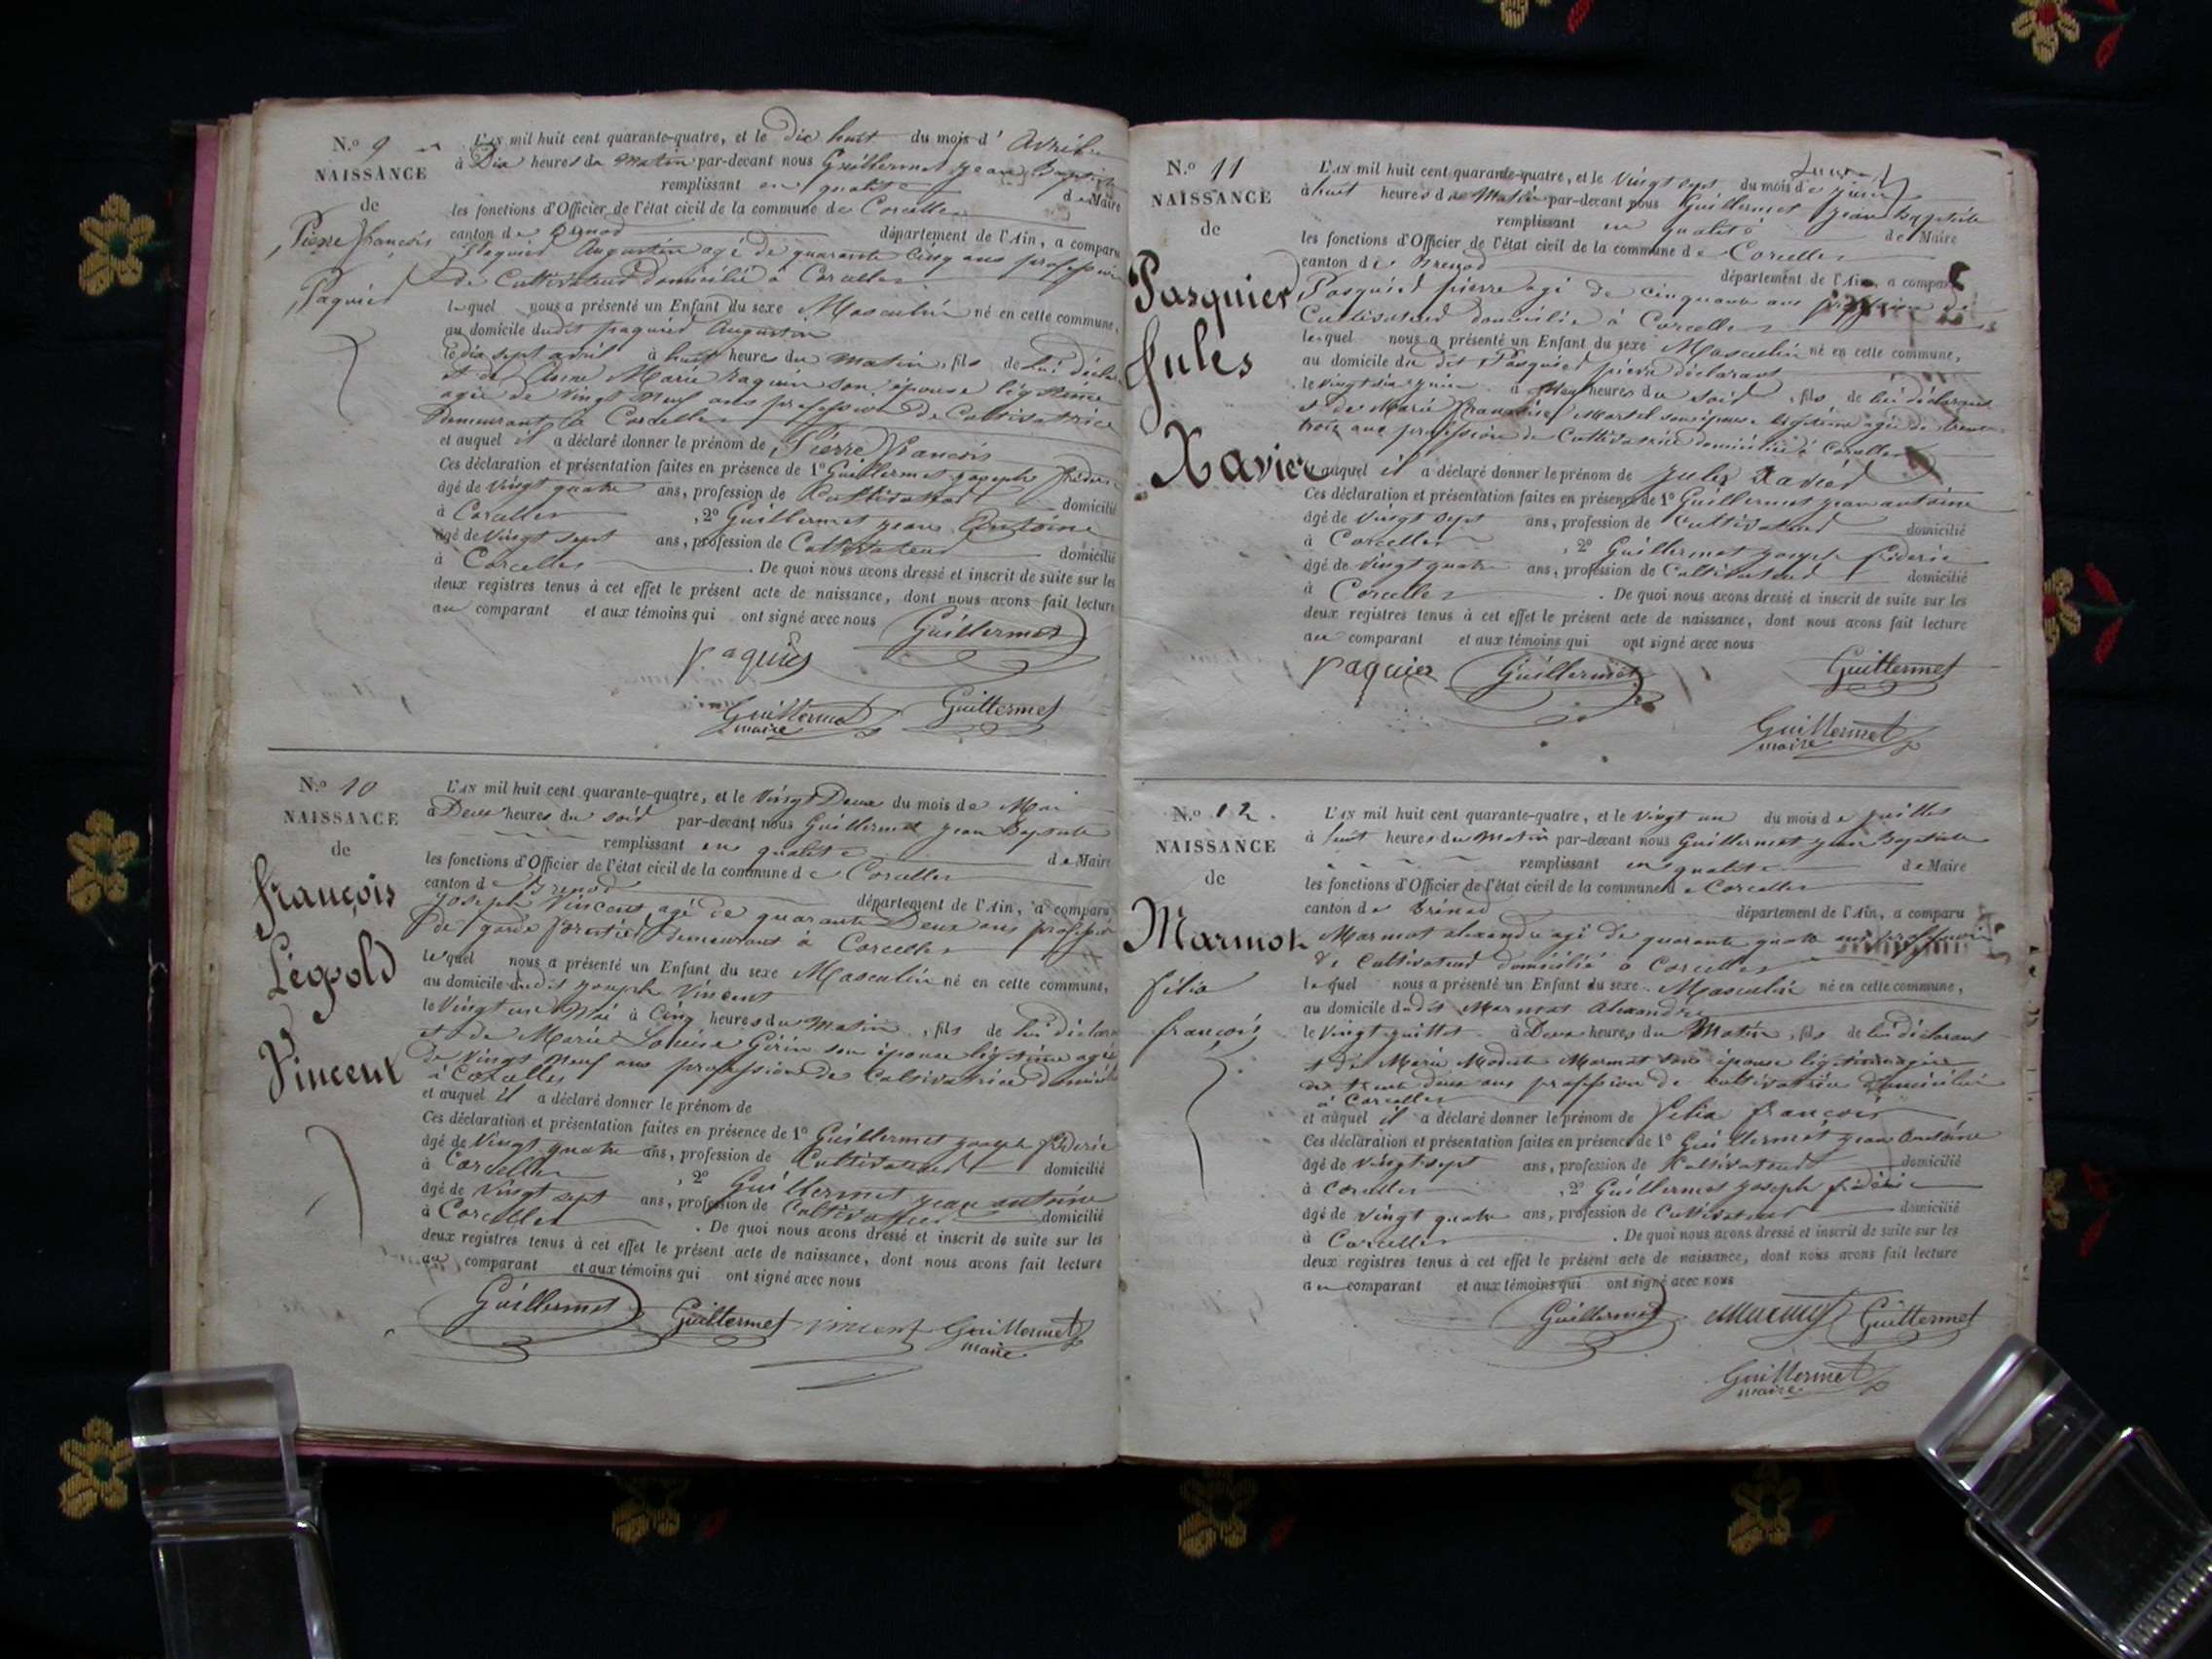 N.º 9
NAISSANCE
de
Pierre françois
Paquier
L'AN mil huit cent quarante-quatre, et le dix huit du mois d' Avril
à Dix heures du matin par-devant nous Guillermet jean Baptiste
remplissant en qualité de Maire
les fonctions d'Officier de l'état civil de la commune de Corcelles
canton de Brenod département de l'Ain, a comparu
Paquier Augustin agé de quarante cinq ans profession
de Cultivateur domicilié à Corcelles
lequel nous a présenté un Enfant du sexe Masculin né en cette commune,
au domicile dudit paquier Augustin
le dix sept avril à huit heures du matin, fils de lui déclarant
et de Anne Marie raquin son épouse légitime
agée de vingt neuf ans profession de Cultivatrice
demeurant à Corcelles
et auquel il a déclaré donner le prénom de Pierre francois
Ces déclaration et présentation faites en présence de 1º Guillermet joseph fréderic
âgé de vingt quatre ans, profession de Cultivateur domicilié
à Corcelles , 2º Guillermet jean Antoine
âgé de vingt sept ans, profession de Cultivateur domicilié
à Corcelles . De quoi nous avons dressé et inscrit de suite sur les
deux registres tenus à cet effet le présent acte de naissance, dont nous avons fait lecture
au comparant et aux témoins qui ont signé avec nous
Guillermet
paquier
Guillermet Guillermet
maire
N.º 10
NAISSANCE
de
françois
Léopold
Vincent
L'AN mil huit cent quarante-quatre, et le vingt Deux du mois de Mai
à Deux heures du soir par-devant nous Guillermet jean Baptiste
remplissant en qualité de Maire
les fonctions d'Officier de l'état civil de la commune de Corcelles
canton de Brenod département de l'Ain, a comparu
joseph Vincent agé de quarante Deux ans profession
de garde forestier demeurant à Corcelles
lequel nous a présenté un Enfant du sexe Masculin né en cette commune,
au domicile dudit joseph Vincent
le Vingt un Mai à Cinq heures du matin, fils de lui déclarant
et de Marie Louise Girin son épouse légitime agée
de vingt neuf ans profession de Cultivatrice
à Corcelles
et auquel il a déclaré donner le prénom de
Ces déclaration et présentation faites en présence de 1º Guillermet joseph fréderic
âgé de vingt quatre ans, profession de Cultivateur domicilié
à Corcelles , 2º Guillermet jean antoine
âgé de vingt sept ans, profession de Cultivateur domicilié
à Corcelles . De quoi nous avons dressé et inscrit de suite sur les
deux registres tenus à cet effet le présent acte de naissance, dont nous avons fait lecture
au comparant et aux témoins qui ont signé avec nous
Guillermet Guillermet vincent Guillermet
maire
N.º 11
NAISSANCE
de
Pasquier
Jules
Xavier
L'AN mil huit cent quarante-quatre, et le vingt sept du mois de juin
à huit heures du Matin par-devant nous Guillermet jean Baptiste
remplissant en qualité de Maire
les fonctions d'Officier de l'état civil de la commune de Corcelles
canton de Brenod département de l'Ain, a comparu
Pasquier pierre agé de cinquante ans profession de
Cultivateur domicilié à Corcelles
lequel nous a présenté un Enfant du sexe Masculin né en cette commune,
au domicile du dit Pasquier pierre déclarant
le vingt six juin à heures du soir, fils de lui déclarant
et de Marie françoise Martel son épouse légitime agée de trente
trois ans profession de Cultivatrice domiciliée à Corcelles
et auquel il a déclaré donner le prénom de jules Xavier
Ces déclaration et présentation faites en présence de 1º Guillermet jean antoine
âgé de vingt sept ans, profession de Cultivateur domicilié
à Corcelles , 2º Guillermet joseph fréderic
âgé de vingt quatre ans, profession de Cultivateur domicilié
à Corcelles . De quoi nous avons dressé et inscrit de suite sur les
deux registres tenus à cet effet le présent acte de naissance, dont nous avons fait lecture
au comparant et aux témoins qui ont signé avec nous
paquier Guillermet Guillermet
Guillermet
maire
N.º 12.
NAISSANCE
de
Marmot
félix
françois
L'AN mil huit cent quarante-quatre, et le vingt un du mois de juillet
à huit heures du Matin par-devant nous Guillermet jean Baptiste
remplissant en qualité de Maire
les fonctions d'Officier de l'état civil de la commune de Corcelles
canton de Brénod département de l'Ain, a comparu
Marmot alexandre agé de quarante quatre ans profession
de Cultivateur domicilié à Corcelles
lequel nous a présenté un Enfant du sexe Masculin né en cette commune,
au domicile dudit Marmot Alexandre
le Vingt juillet à Deux heures du Matin, fils de lui déclarant
et de Marie Modeste Marmot son épouse légitime agée
de trente deux ans profession de cultivatrice domiciliée
à Corcelles
et auquel il a déclaré donner le prénom de félix françois
Ces déclaration et présentation faites en présence de 1º Guillermet jean Antoine
âgé de vingt sept ans, profession de Cultivateur domicilié
à Corcelles , 2º Guillermet joseph fréderic
âgé de vingt quatre ans, profession de Cultivateur domicilié
à Corcelles . De quoi nous avons dressé et inscrit de suite sur les
deux registres tenus à cet effet le présent acte de naissance, dont nous avons fait lecture
au comparant et aux témoins qui ont signé avec nous
Guillermet Marmot Guillermet
Guillermet
maire